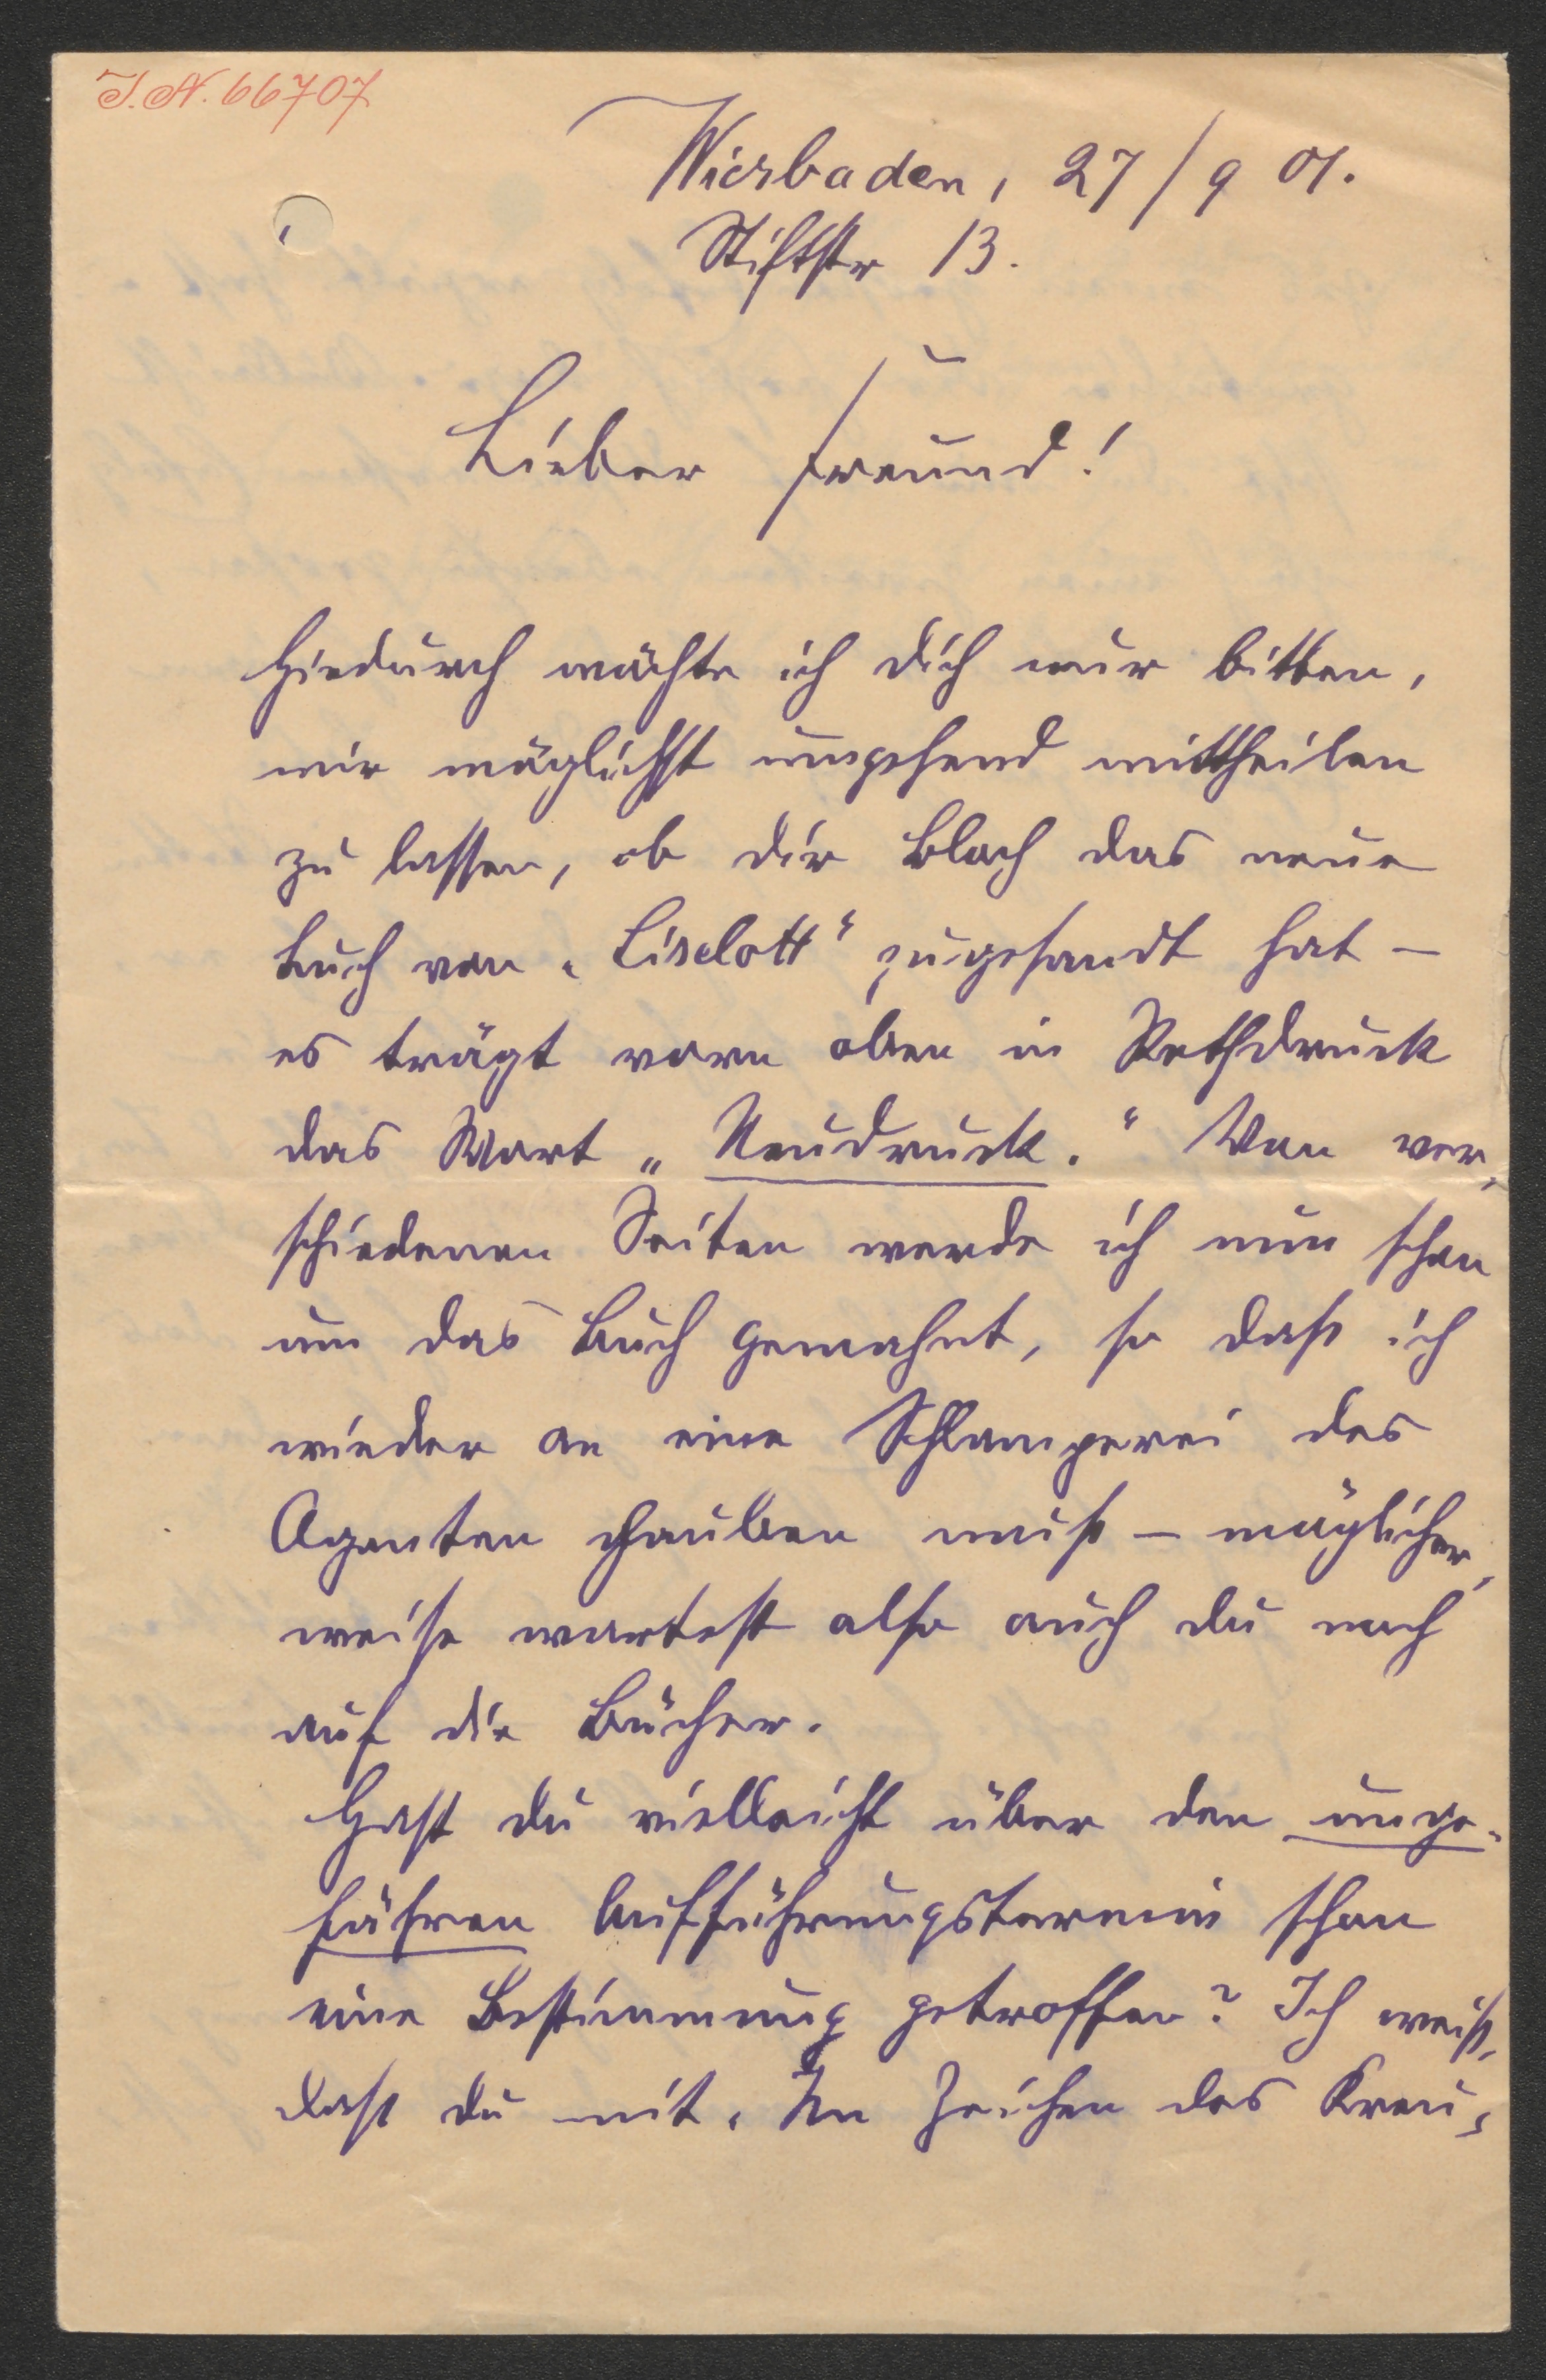 I.N. 66707
Wiesbaden, 27/9 01.
Stiftstr 13.
Lieber Freund!
Hiedurch möchte ich dich nur bitten,
mir möglichst umgehend mittheilen
zu lassen, ob dir Bloch das neue
Buch von „Liselott“ zugesandt hat –
es trägt vorn oben in Rothdruck
das Wort „Neudruck.“ Von ver-
schiedenen Seiten werde ich nun schon
um das Buch gemahnt, so dass ich
wieder an eine Schlamperei des
Agenten glauben muss – möglicher-
weise wartest also auch du noch
auf die Bücher.
Hast du vielleicht über den unge-
fähren Aufführungstermin schon
eine Bestimmung getroffen? Ich weiss,
dass du mit „Im Zeichen des Kreu-